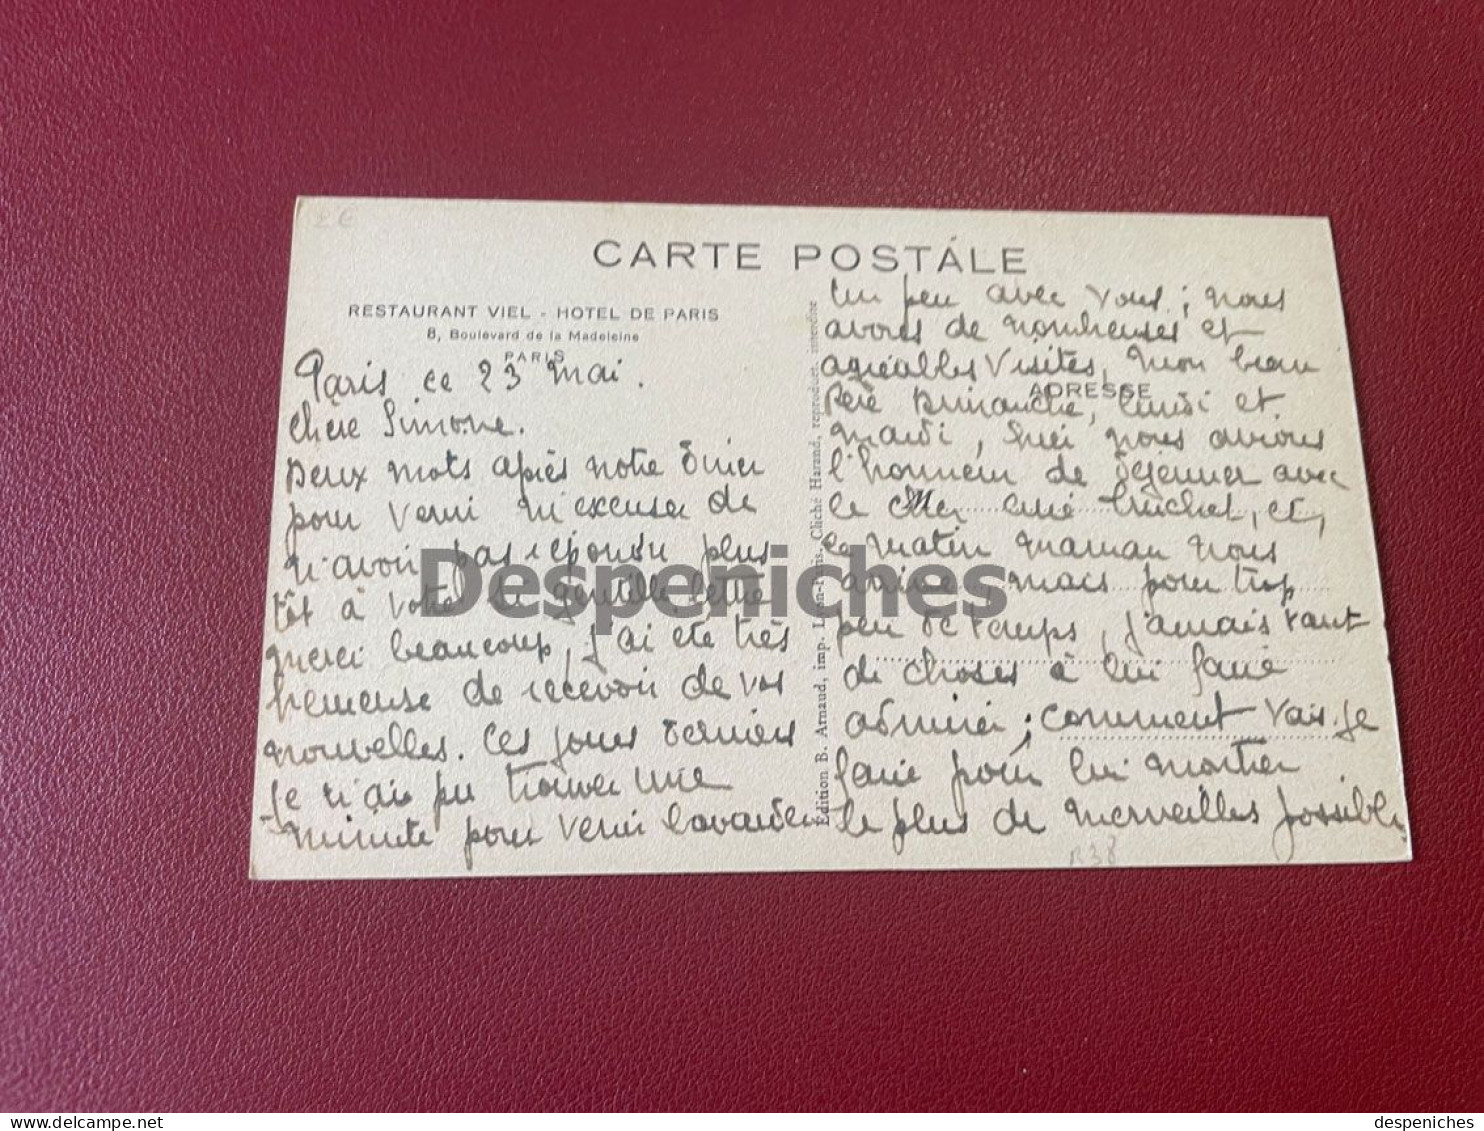 CARTE POSTALE
RESTAURANT VIEL - HOTEL DE PARIS
8, Boulevard de la Madeleine
PARIS
Paris ce 23 mai.
Chere Simone.
Deux mots après notre diner
pour venir m'excuser de
n'avoir pas repondu plus
tôt à votre si gentille lettre
merci beaucoup, j'ai été très
heureuse de recevoir de vos
nouvelles. Ces jours derniers
je n'ai pu trouver une
minute pour venir bavarder
Edition B. Arnaud, imp. Lyon-Paris. Cliché Harand, reproduct. interdite
un peu avec vous ; nous
avons de nombreuses et
agréables visites, mon beau
ADRESSE
père Dimanche, lundi et
mardi, hier nous avions
l'honneur de déjeuner avec
le cher curé Truchet, et,
ce matin maman nous
arrive mais pour trop
peu de temps, j'amais tant
de choses à lui faire
admirer ; comment vais-je
faire pour lui montrer
le plus de merveilles possible.
R38
Despeniches
despeniches